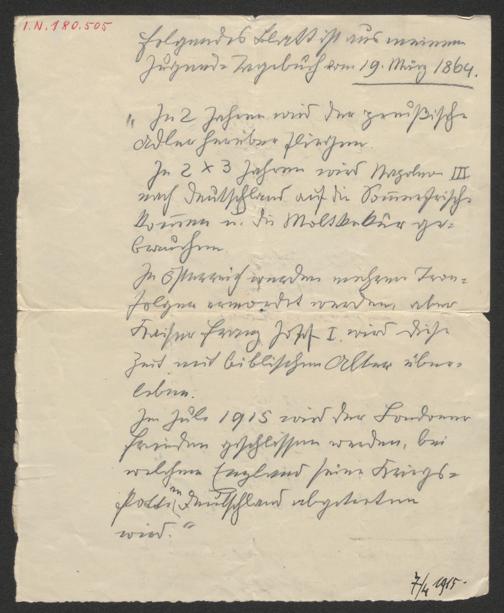 I.N. 180.505
Folgendes Blatt ist aus meinem
Jugend-Tagebuch vom 19. März 1864.
"In 2 Jahren wird der preußische
Adler herüber fliegen.
In 2 x 3 Jahren wird Napoleon III
nach Deutschland auf die Sommerfrische
kommen u. die Moltkekur ge-
brauchen.
In Österreich werden mehrere Tron-
folger ermordet werden, aber
Kaiser Franz Josef I. wird diese
Zeit mit biblischem Alter über-
leben.
Im Juli 1915 wird der Londoner
Frieden geschlossen werden, bei
welchem England seine Kriegs-
flotte an Deutschland abgetreten
wird."
7/4 1915.